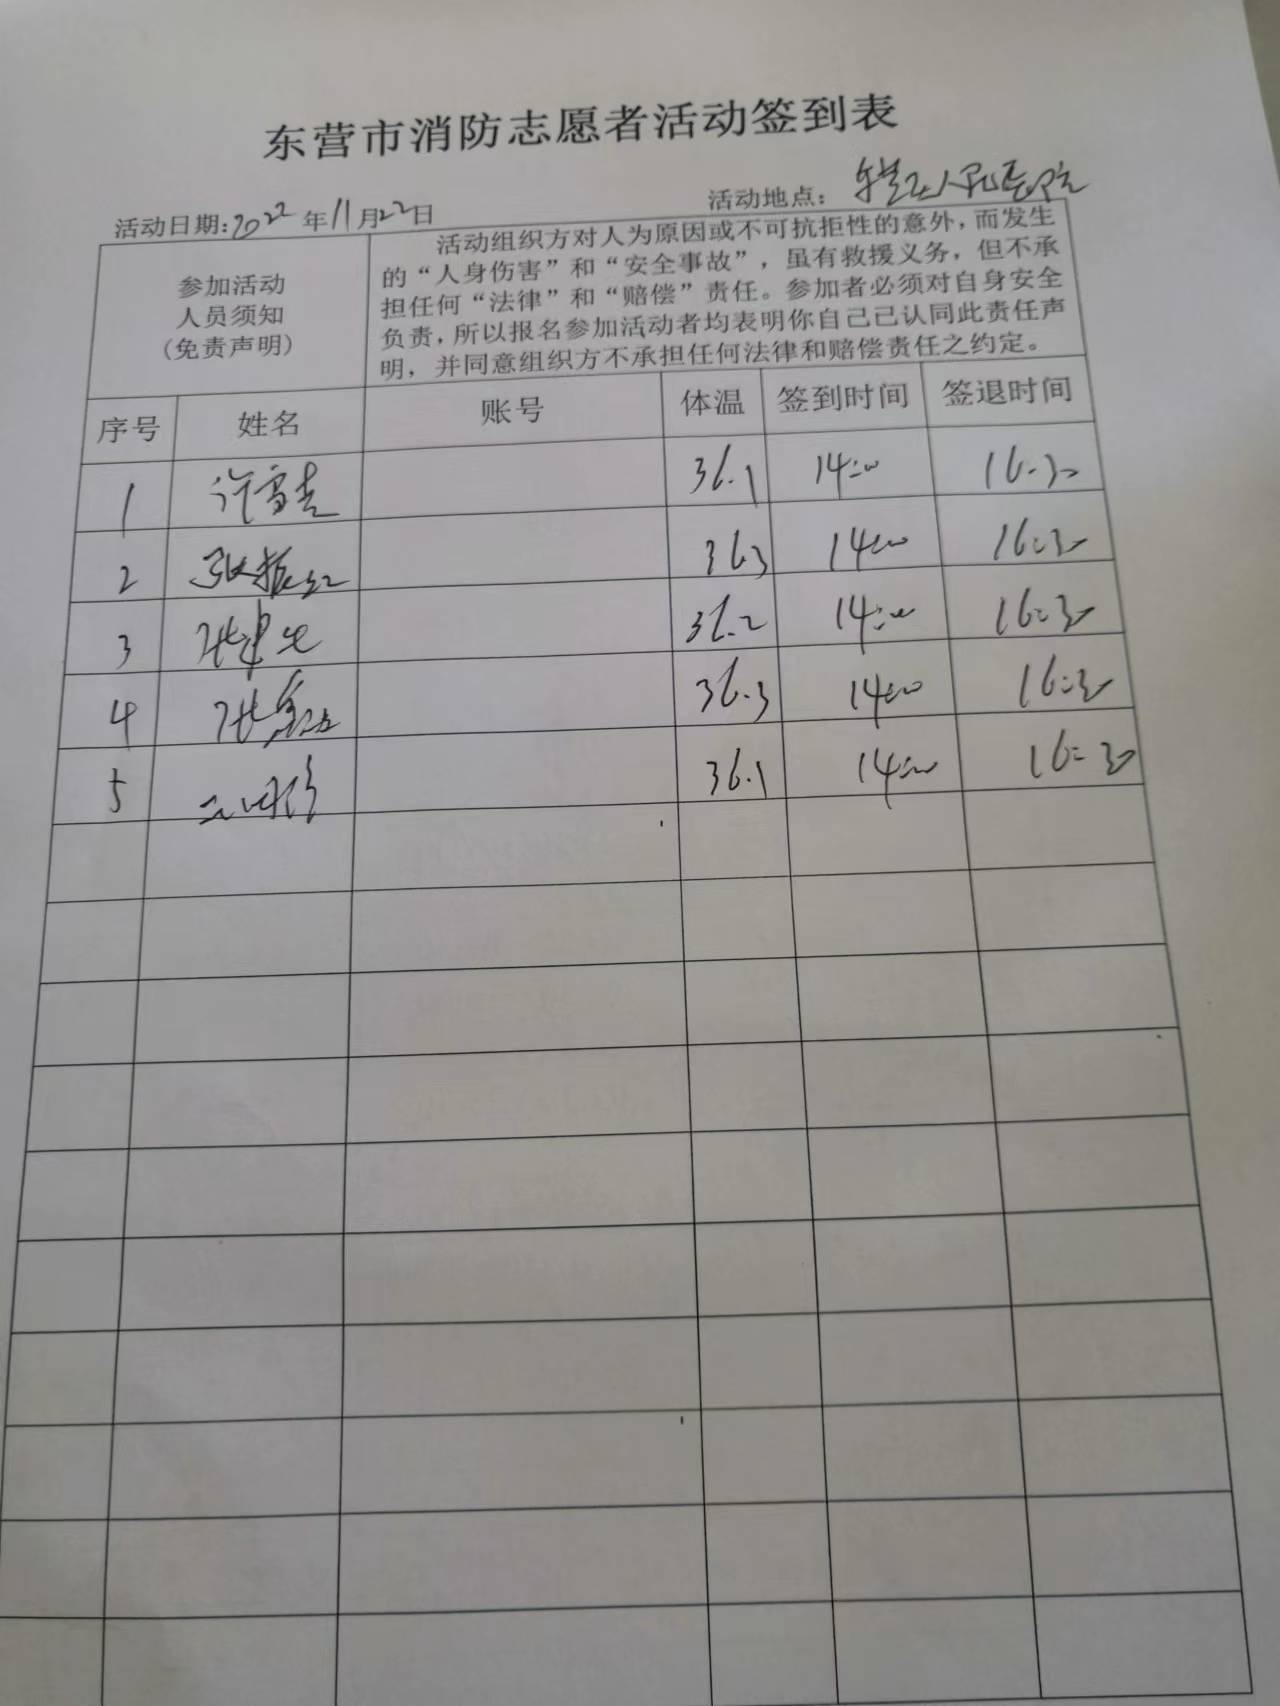 东营市消防志愿者活动签到表
活动日期:2022年11月22日 活动地点: 东营区人民医院
参加活动
人员须知
(免责声明)
活动组织方对人为原因或不可抗拒性的意外，而发生
的“人身伤害”和“安全事故”，虽有救援义务，但不承
担任何“法律”和“赔偿”责任。参加者必须对自身安全
负责，所以报名参加活动者均表明你自己已认同此责任声
明，并同意组织方不承担任何法律和赔偿责任之约定。
序号 姓名 账号 体温 签到时间 签退时间
1 36.1 14:00 16:30
2 36.3 14:00 16:30
3 36.2 14:00 16:30
4 36.3 14:00 16:30
5 36.1 14:00 16:30